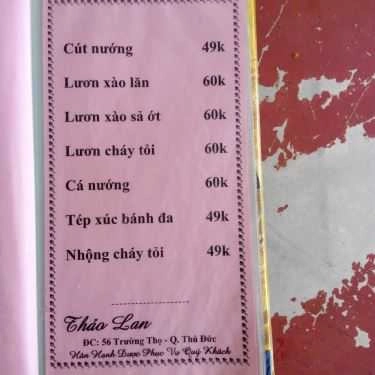 Cút nướng 49k
Lươn xào lăn 60k
Lươn xào sả ớt 60k
Lươn cháy tỏi 60k
Cá nướng 60k
Tép xúc bánh đa 49k
Nhộng cháy tỏi 49k
Thảo Lan
ĐC: 56 Trường Thọ - Q. Thủ Đức
Hân Hạnh Được Phục Vụ Quý Khách